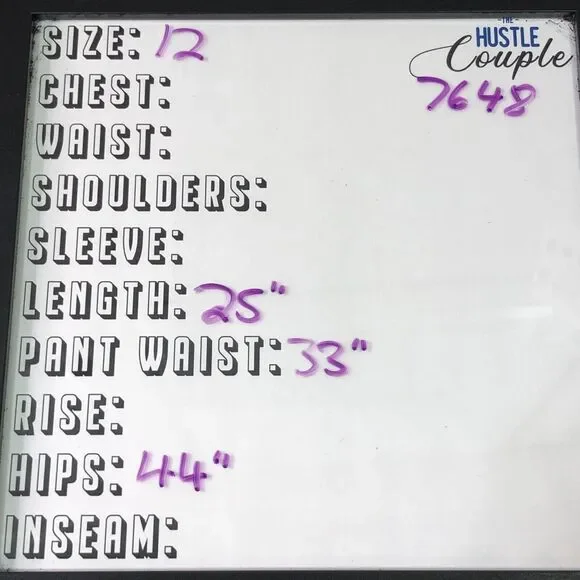 -THE-
HUSTLE
Couple
7648
SIZE: 12
CHEST:
WAIST:
SHOULDERS:
SLEEVE:
LENGTH: 25"
PANT WAIST: 33"
RISE:
HIPS: 44"
INSEAM: